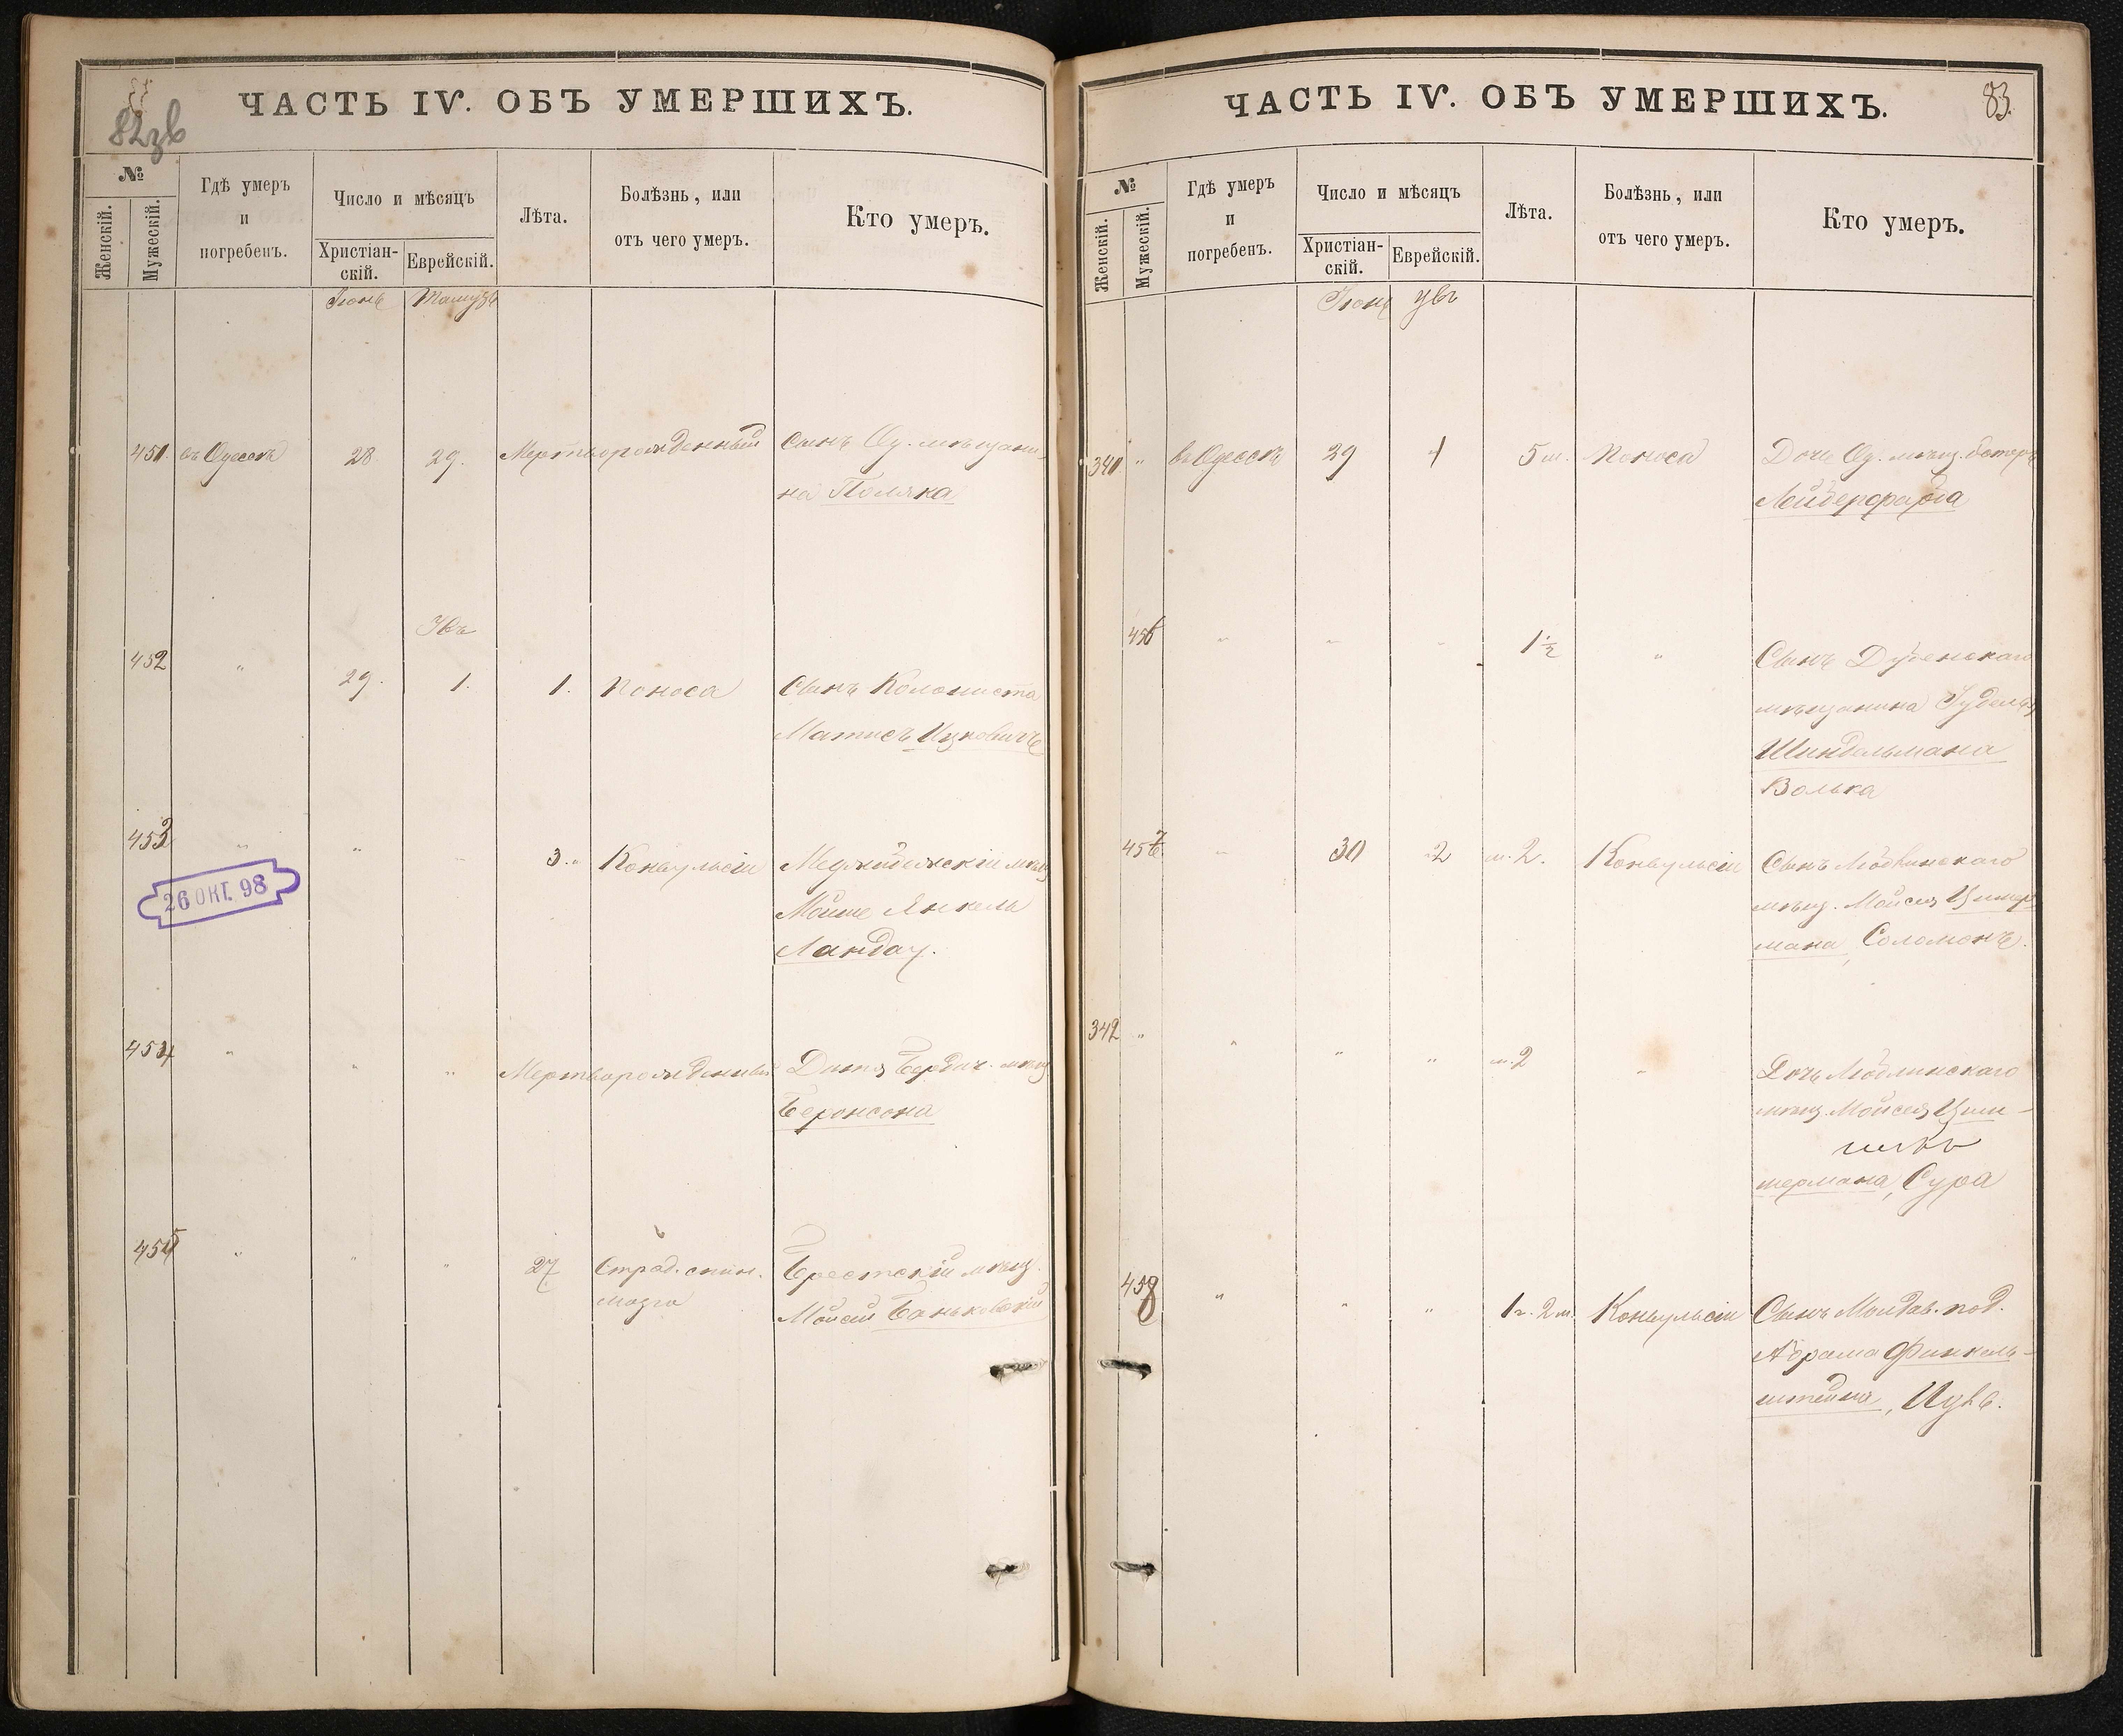 ЧАСТЬ IV. ОБЪ УМЕРШИХЪ.
№
Женскій.
Мужескій.
Гдѣ умеръ
и
погребенъ.
Число и мѣсяцъ
Христіан-
скій.
Еврейскій.
Лѣта.
Болѣзнь, или
отъ чего умеръ.
Кто умеръ.
Іюнь Тамузъ
451. въ Одессѣ 28 29. Мертворожденный Сынъ Од. мѣщани-
на Поляка
452 " 29. 1. 1. Поноса Сынъ Колониста
Матисъ Ицковичъ
453 " " " 3. " Конвульсіи мѣщ
Мойше Янкель
Ландау.
26 ОКТ. 98
454 " " " Мертворожденный Дитя Бердич. мѣщ
Беронсона
455 " " " 27 Страд. спин. Брестскій мѣщ.
мозга Мойсей Баньковскій
ЧАСТЬ IV. ОБЪ УМЕРШИХЪ.
83.
№
Женскій.
Мужескій.
Гдѣ умеръ
и
погребенъ.
Число и мѣсяцъ
Христіан-
скій.
Еврейскій.
Лѣта.
Болѣзнь, или
отъ чего умеръ.
Кто умеръ.
Іюнь
" въ Одессѣ 29 1 5 м. Поноса Дочь Од. мѣщ.
456 " " " 1 ½ " Сынъ Дубенскаго
мѣщанина
Шиндельмана
Волька
457 " 30 2 м. 2. Конвульсіи Сынъ
мѣщ. Мойсея Цимер
мана, Соломонъ.
342 " " " " м. 2 " Дочь Люблинскаго
мѣщ. Мойсея Цим-
мермана, Сура
458 " " " 1 г. 2 м. Конвульсіи Сынъ Молдав. под.
Абрама Финкель-
штейна,